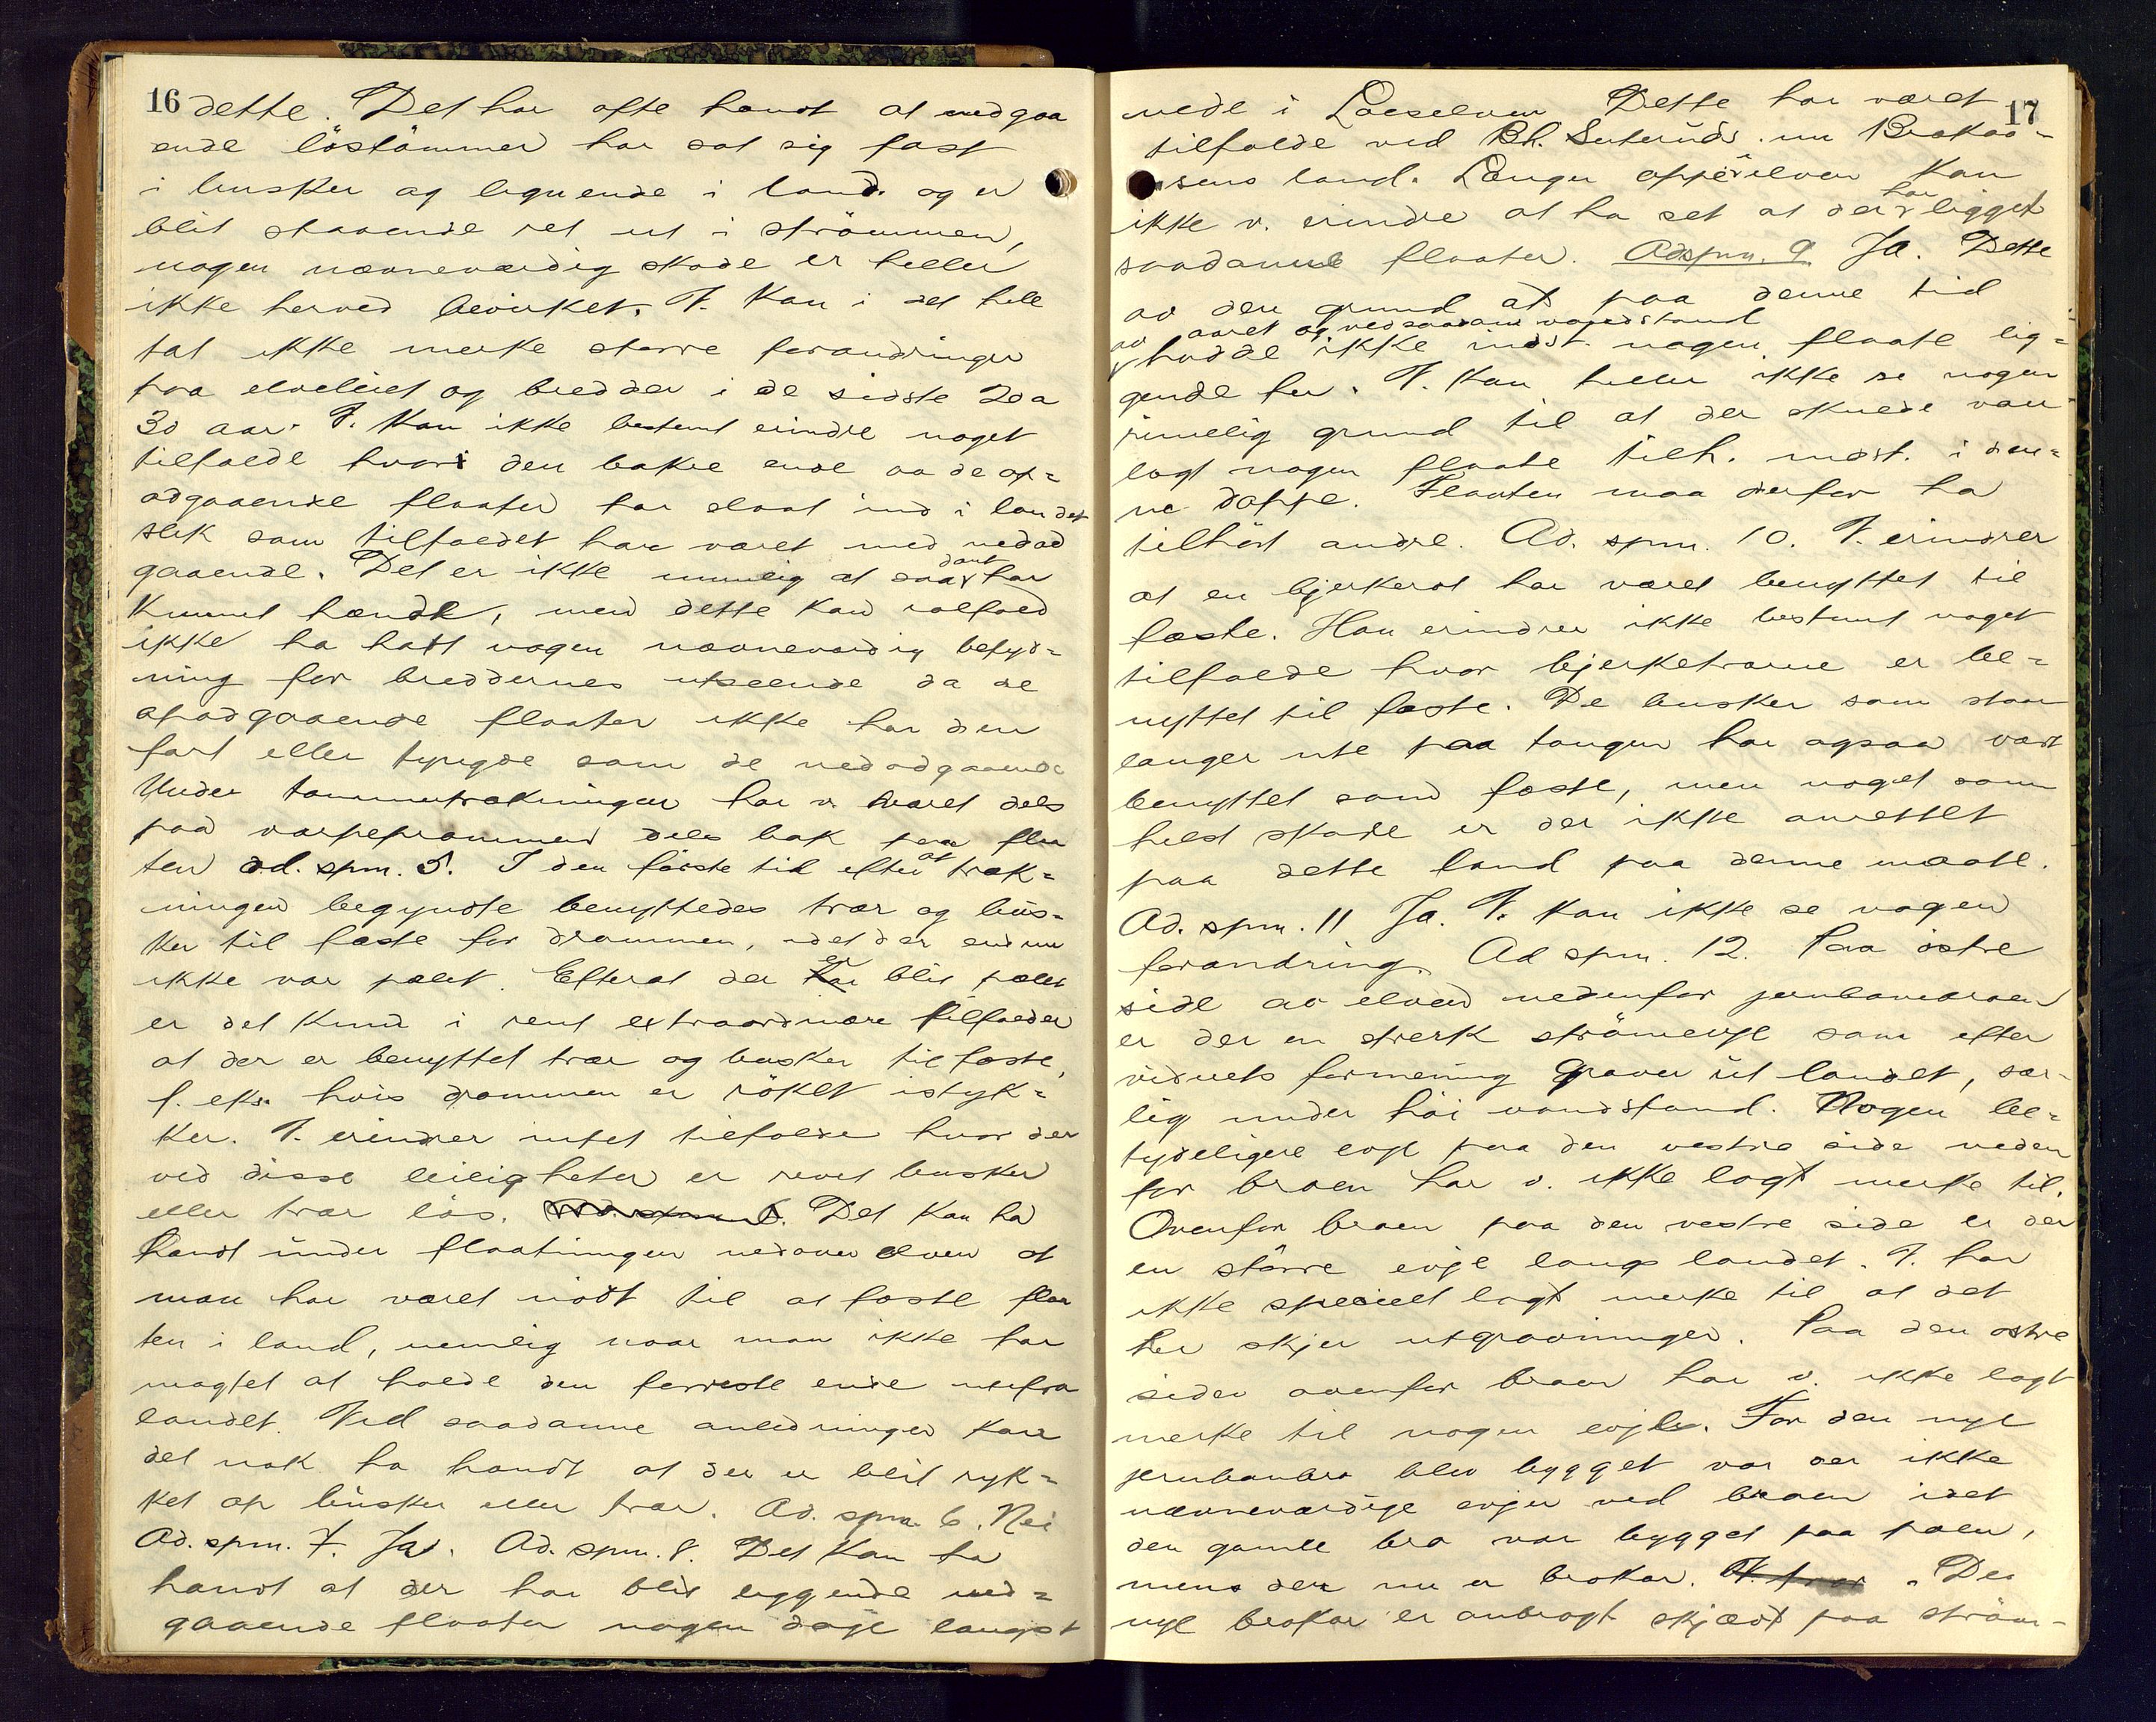 16 dette. Det har ofte hændt at nedgaa
ende löstömmer har sat sig fast
i busker og lignende i land og er
blit staaende ret ut i strömmen,
nogen nævneværdig skade er heller
ikke herved bevirket. V. kan i det hele
tat ikke merke større forandringer
paa elveleiet og bredder i de sidste 20 a
30 aar. V. kan ikke bestemt erindre noget
tilfælde hvori den bakre ende av de op=
adgaaende flaater har slaat ind i landet
slik som tilfældet har været med nedad
gaaende. Det er ikke umulig at saadant har
kunnet hændt, men dette kan ialfald
ikke ha hatt nogen nævneværdig betyd=
ning for breddernes utseende da de
opadgaaende flaater ikke har den
fart eller tyngde som de nedadgaaende
Under tømmertrækningen har v. været dels
paa varpeprammen dels bak paa flaa
ten ad. spm. 5. I den förste tid efter at træk=
ningen begyndte benyttedes trær og bus=
ker til fæste for drammen, idet der endnu
ikke var pælet. Efterat der er blit pælet
er det kund i rent extraordinære tilfælder
at der er benyttet trær og busker til fæste,
f. eks. hvis drammen er röket istyk=
ker. V. erindrer intet tilfælde hvor der
ved disse leiligheter er revet busker
eller trær lös. Det kan ha
hændt under flaatningen nedover elven at
man har været nödt til at fæste flaa
ten i land, nemlig naar man ikke har
magtet at holde den forreste ende utefra
landet. Ved saadanne anledninger kan
det nok ha hændt at der er blit ryk=
ket op busker eller trær. Ad. spm. 6. Nei
Ad. spm. 7. Ja. Ad. spm. 8. Det kan ha
hændt at der har blit liggende ned=
gaaende flaater nogen dage langst
17
nede i Loeselven Dette har været
tilfælde ved Bl. Seterüds nu Brokaa-
sens land. Længer oppe i elven kan
ikke v. erindre at ha set at der har ligget
saadanne flaater. Ad spm. 9 Ja. Dette
av den grund at paa denne tid
av aaret og ved saadan vandstand
hadde ikke indst. nogen flaate lig=
gende her. V. kan heller ikke se nogen
rimelig grund til at der skulde være
lagt nogen flaate tilh. indst. i den=
ne dappe. Flaaten maa derfor ha
tilhört andre. Ad. spm. 10. V. erindrer
at en bjerkerot har været benyttet til
fæste. Han erindrer ikke bestemt noget
tilfælde hvor bjerketrærne er be=
nyttet til fæste. De busker som staar
længer ute paa tangen har ogsaa vært
benyttet som fæste, men noget som
helst skade er der ikke anrettet
paa dette land paa denne maate.
Ad. spm. 11 Ja. V. kan ikke se nogen
forandring. Ad spm. 12. Paa östre
side av elven nedenfor jernbanebroen
er der en sterk strömevje som efter
vidnets formening graver ut landet, sær-
lig under höi vandstand. Nogen be=
tydeligere evje paa den vestre side neden
for broen har v. ikke lagt merke til.
Ovenfor broen paa den vestre side er der
en större evje langs landet. V. har
ikke specielt lagt merke til at det
her skjer utgravninger. Paa den østre
siden ovenfor broen har v. ikke lagt
merke til nogen evje. Før den nye
jernbanbro blev bygget var der ikke
nævneværdige evjer ved broen idet
den gamle bro var bygget paa pæler,
mens der nu er brokar. V. tror. De
nye brokar er anbragt skjævt paa ström-